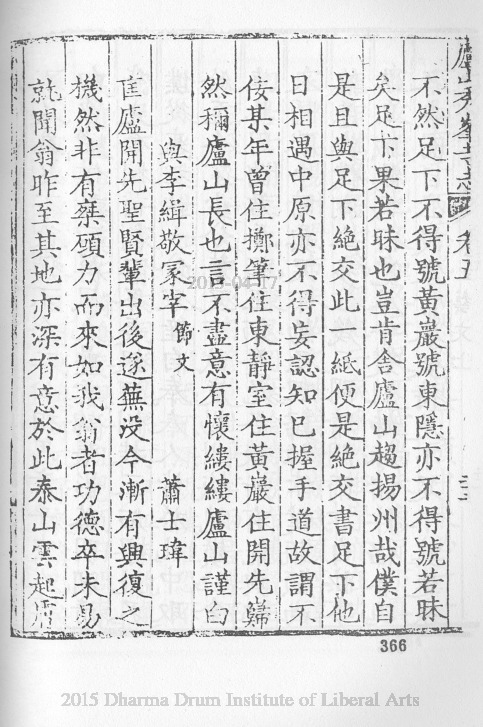 廬山秀峯寺志 卷五
不然足下不得號黃巖號東隱亦不得號若昧
矣足下果若昧也豈肯舍廬山趨揚州哉僕自
是且與足下絶交此一紙便是絶交書足下他
日相遇中原亦不得妄認知已握手道故謂不
佞某年曾住擲筆住東靜室住黃巖住開先歸
然稱廬山長也言不盡意有懷縷縷廬山謹白
與李緝敬冢宰 節文 蕭士瑋
匡廬開先聖賢輩出後遂蕪没今漸有興復之
機然非有槩碩力而來如我翁者功德卒未易
就聞翁昨至其地亦深有意於此泰山雲起
366
2015-04-17
2015 Dharma Drum Institute of Liberal Arts